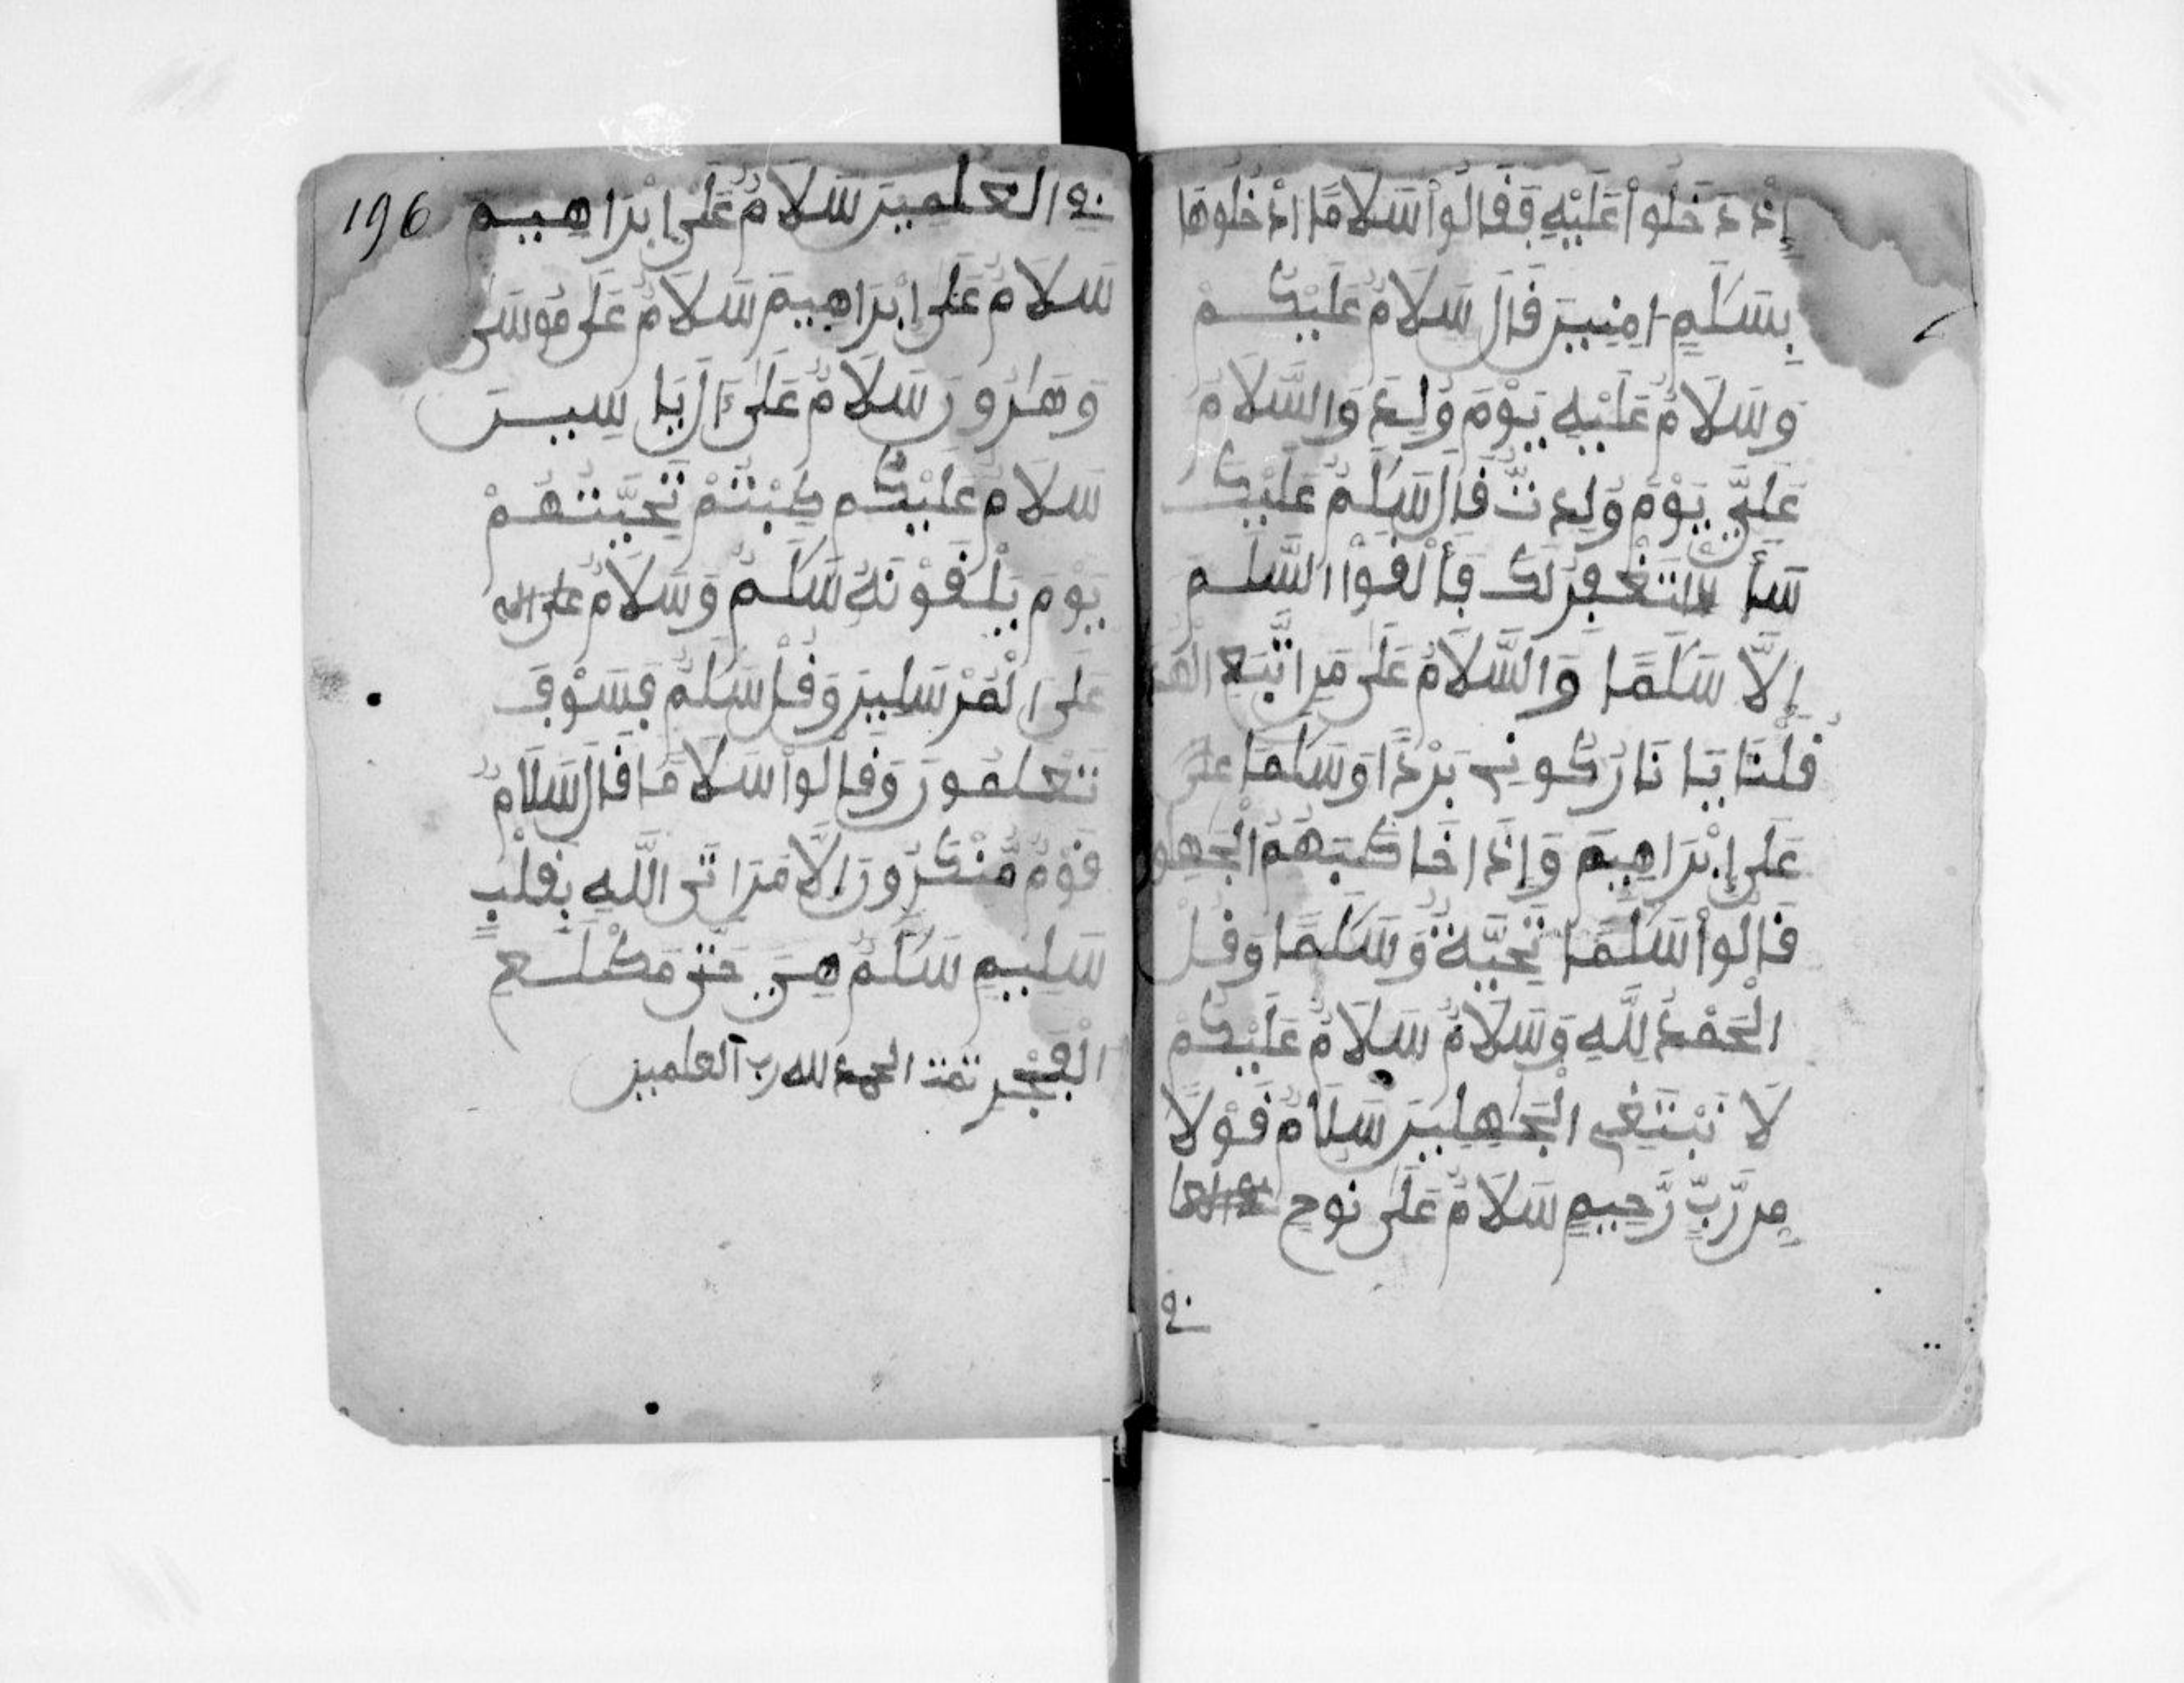 إِذْ دَخَلُواْ عَلَيْهِ فَقَالُواْ سَلَامًا ادْخُلُوهَا
بِسَلَٰمٍ امِنِينَ قَالَ سَلَامٌ عَلَيْكُمْ
وَسَلَامٌ عَلَيْهِ يَوْمَ وُلِدَ وَالسَّلَامُ
عَلَيَّ يَوْمَ وُلِدتُّ قَالَ سَلَٰمٌ عَلَيْكَ
سَأَسْتَغْفِرُ لَكَ فَأَلْقَوُاْ السَّلَمَ
إِلَّا سَلَٰمًا وَالسَّلَامُ عَلَىٰ مَنِ اتَّبَعَ الْهُدَ
قُلْنَا يَا نَارُ كُونِي بَرْدًا وَسَلَٰمًا عَلَىٰ
عَلَىٰ إِبْرَاهِيمَ وَإِذَا خَاطَبَهُمُ الْجَٰهِلُو
قَالُواْ سَلَٰمًا تَحِيَّةً وَسَلَٰمًا وَقُلِ
الْحَمْدُ لِلَّهِ وَسَلَامٌ سَلَامٌ عَلَيْكُمْ
لَا نَبْتَغِي الْجَٰهِلِينَ سَلَامٌ قَوْلًا
مِّن رَّبٍّ رَّحِيمٍ سَلَامٌ عَلَىٰ نُوحٍ
في
196
في الْعَٰلَمِينَ سَلَامٌ عَلَىٰ إِبْرَاهِيمَ
سَلَامٌ عَلَىٰ إِبْرَاهِيمَ سَلَامٌ عَلَىٰ مُوسَىٰ
وَهَٰرُونَ سَلَامٌ عَلَىٰ ءَالِ يَاسِينَ
سَلَامٌ عَلَيْكُمْ طِبْتُمْ تَحِيَّتُهُمْ
يَوْمَ يَلْقَوْنَهُ سَلَٰمٌ وَسَلَامٌ
عَلَى الْمُرْسَلِينَ وَقُلْ سَلَٰمٌ فَسَوْفَ
تَعْلَمُونَ وَقَالُواْ سَلَامًا قَالَ سَلَامٌ
قَوْمٌ مُّنْكَرُونَ إِلَّا مَنَ اتَى اللَّهَ بِقَلْبٍ
سَلِيمٍ سَلَٰمٌ هِيَ حَتَّىٰ مَطْلَعِ
الْفَجْرِ تمت الحمد لله رب العالمين